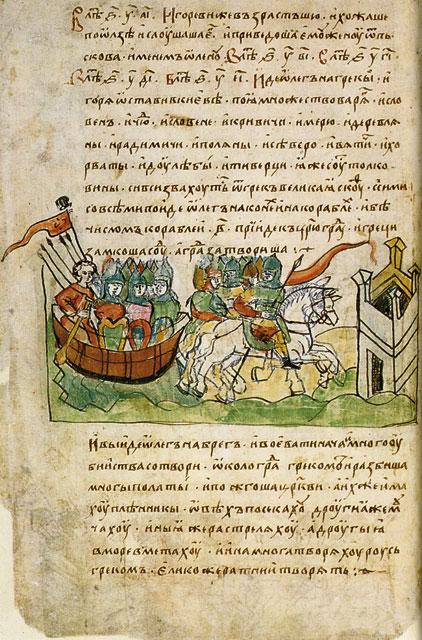 В лѣⷮ ҂ѕ҃ . у҃ . аı҃ . Игоревижевъзрастъшю . ихожаше
поѡлзѣ ислоушашаеⷢ . иприведошаемоуженоуѿпь
скова . именемъѡленоу . В лѣⷮ ҂ѕ҃ . у҃ . вı҃ . В лѣⷮ ҂ѕ҃ . у҃ . гı҃
В лѣⷮ ҂ѕ҃ . у҃ . дı҃ . В лѣⷮ ҂ѕ҃ . у҃ . еı҃ . Идеѡлегънагрекы . и
горѧѡставивкиевѣ . поѧмножествоварѧⷢ . исло
венъ . ичюⷣ . исловене . икривичи . имерю . идеревлѧ
ны . ирадимичи . иполѧны . исѣверо . ивѧтиⷱ . ихо
рваты . идоулѣбы . итиверци . ꙗжесоуⷮтолко
вины . сивсизвахоутьⷭ ѿгрекъвеликаѧскоуⷴ . сими
совсѣмипоидеѡлегънаконеⷯинакораблеⷯ . ибѣ
числомъкораблеи . в҃ . прїидекъцрюграⷣ . игреци
замкошасоуⷣ . аграⷣзатвориша :~
Ивыидеѡлегънабрегъ . ивоеватинача . многооу
биистваⷭотвори . ѡколограⷣ грекомⷩ . иразбиша
многыполаты . ипожгошацр҃кви . аиⷯжеима
хоуплѣнникы . ѡвѣхъпосекахоⷹ . дроугиꙗжемоу
чахоу . иныѧжерастрелѧхоу . адроугыꙗ
вморевметахоу . иинамногатворѧхоуроусь
грекомъ . еликожератнїитворѧть :~